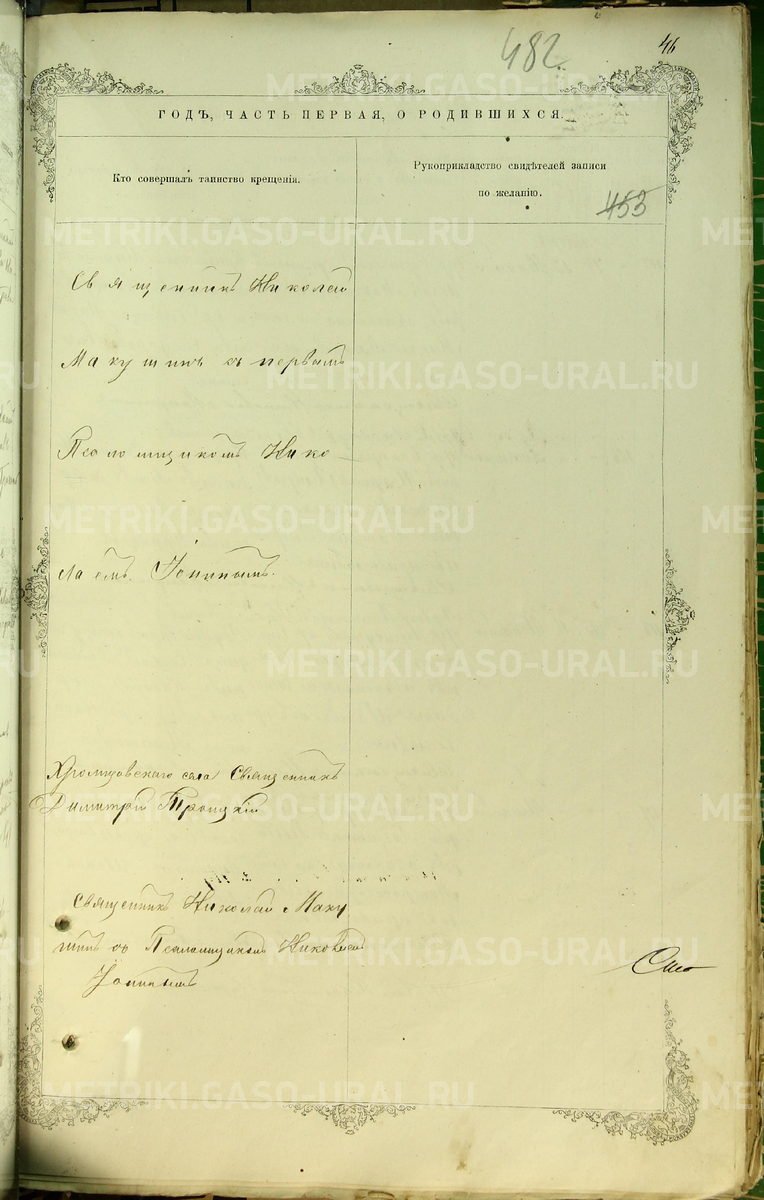 482
46
ГОДЪ, ЧАСТЬ ПЕРВАЯ, О РОДИВШИХСЯ.
Кто совершалъ таинство крещенія.
Рукоприкладство свидѣтелей записи
по желанію.
453
Священникъ Николай
Макушинъ съ первымъ
Псаломщикомъ Нико
лаемъ Іонинымъ.
Хромцовскаго села Священникъ
Димитрій Троицкій
Священникъ Николай Маку
шинъ съ Псаломщикомъ Николаемъ
Іонинымъ
METRIKI.GASO-URAL.RU